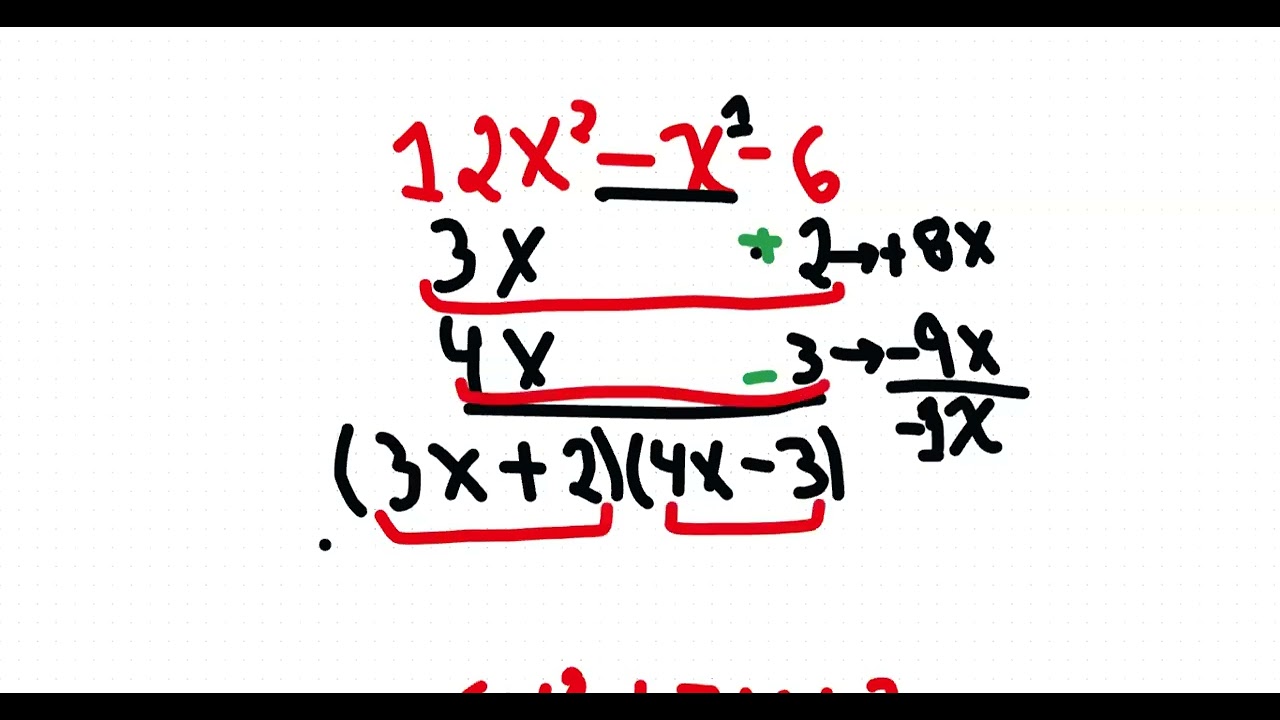 12x² - x¹ - 6
3x + 2 → + 8x
4x - 3 → - 9x
-1x
(3x + 2)(4x - 3)